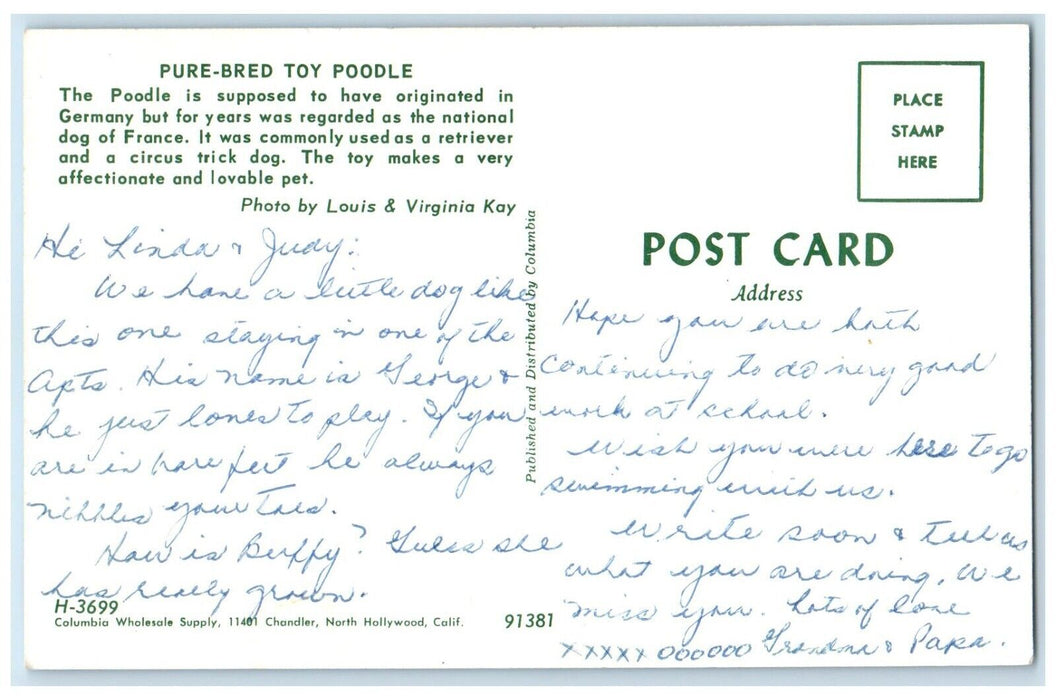 PURE-BRED TOY POODLE
The Poodle is supposed to have originated in
Germany but for years was regarded as the national
dog of France. It was commonly used as a retriever
and a circus trick dog. The toy makes a very
affectionate and lovable pet.
Photo by Louis & Virginia Kay
Hi Linda & Judy:
We have a little dog like
this one staying in one of the
Apts. His name is George &
he just loves to play. If you
are in bare feet he always
nibbles your toes.
How is Buffy? Guess she
has really grown.
H-3699
Columbia Wholesale Supply, 11401 Chandler, North Hollywood, Calif.
91381
Published and Distributed by Columbia
PLACE
STAMP
HERE
POST CARD
Address
Hope you are both
continuing to do very good
work at school.
Wish you were here to go
swimming with us.
Write soon & tell us
what you are doing. We
miss you. Lots of love
xxxxx oooooo Grandma & Papa.